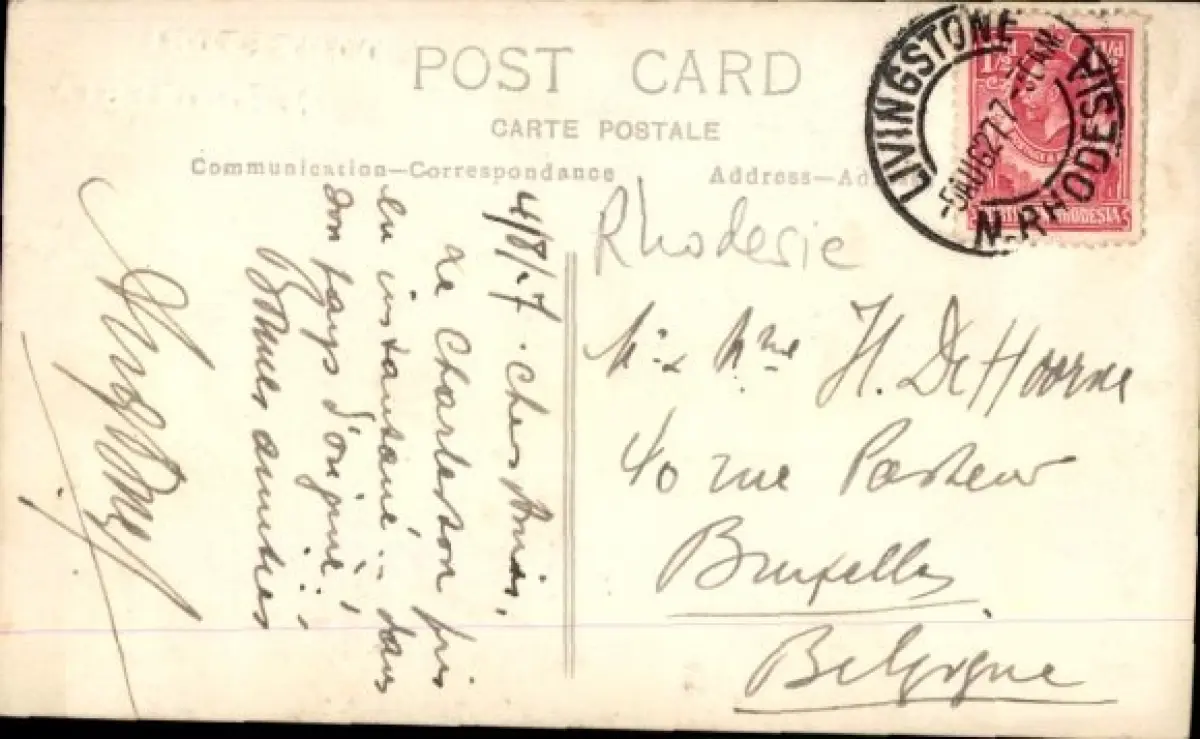 POST CARD
CARTE POSTALE
Communication—Correspondance
Address—Ad
LIVINGSTONE
N. RHODESIA
1½d
RHODESIA
4/8/27. Chers Amis,
Le Charleston pris
en instantané... dans
son pays d'origine!
Bonnes amitiés
Rhodesie
M. & Mme H. De Hoorne
40 rue Pasteur
Bruxelles
Belgique